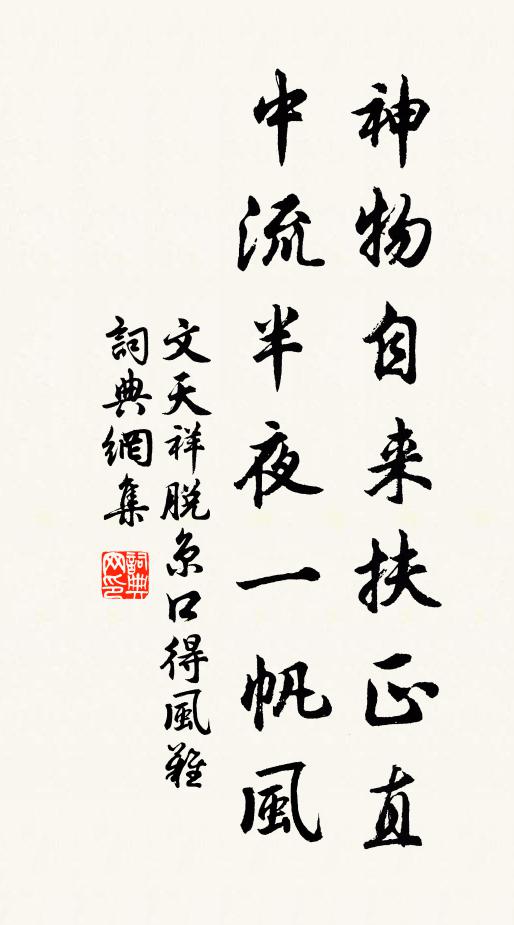 神物自来扶正直
中流半夜一帆風
文天祥脱京口得風難
詞典網集
詞典網印